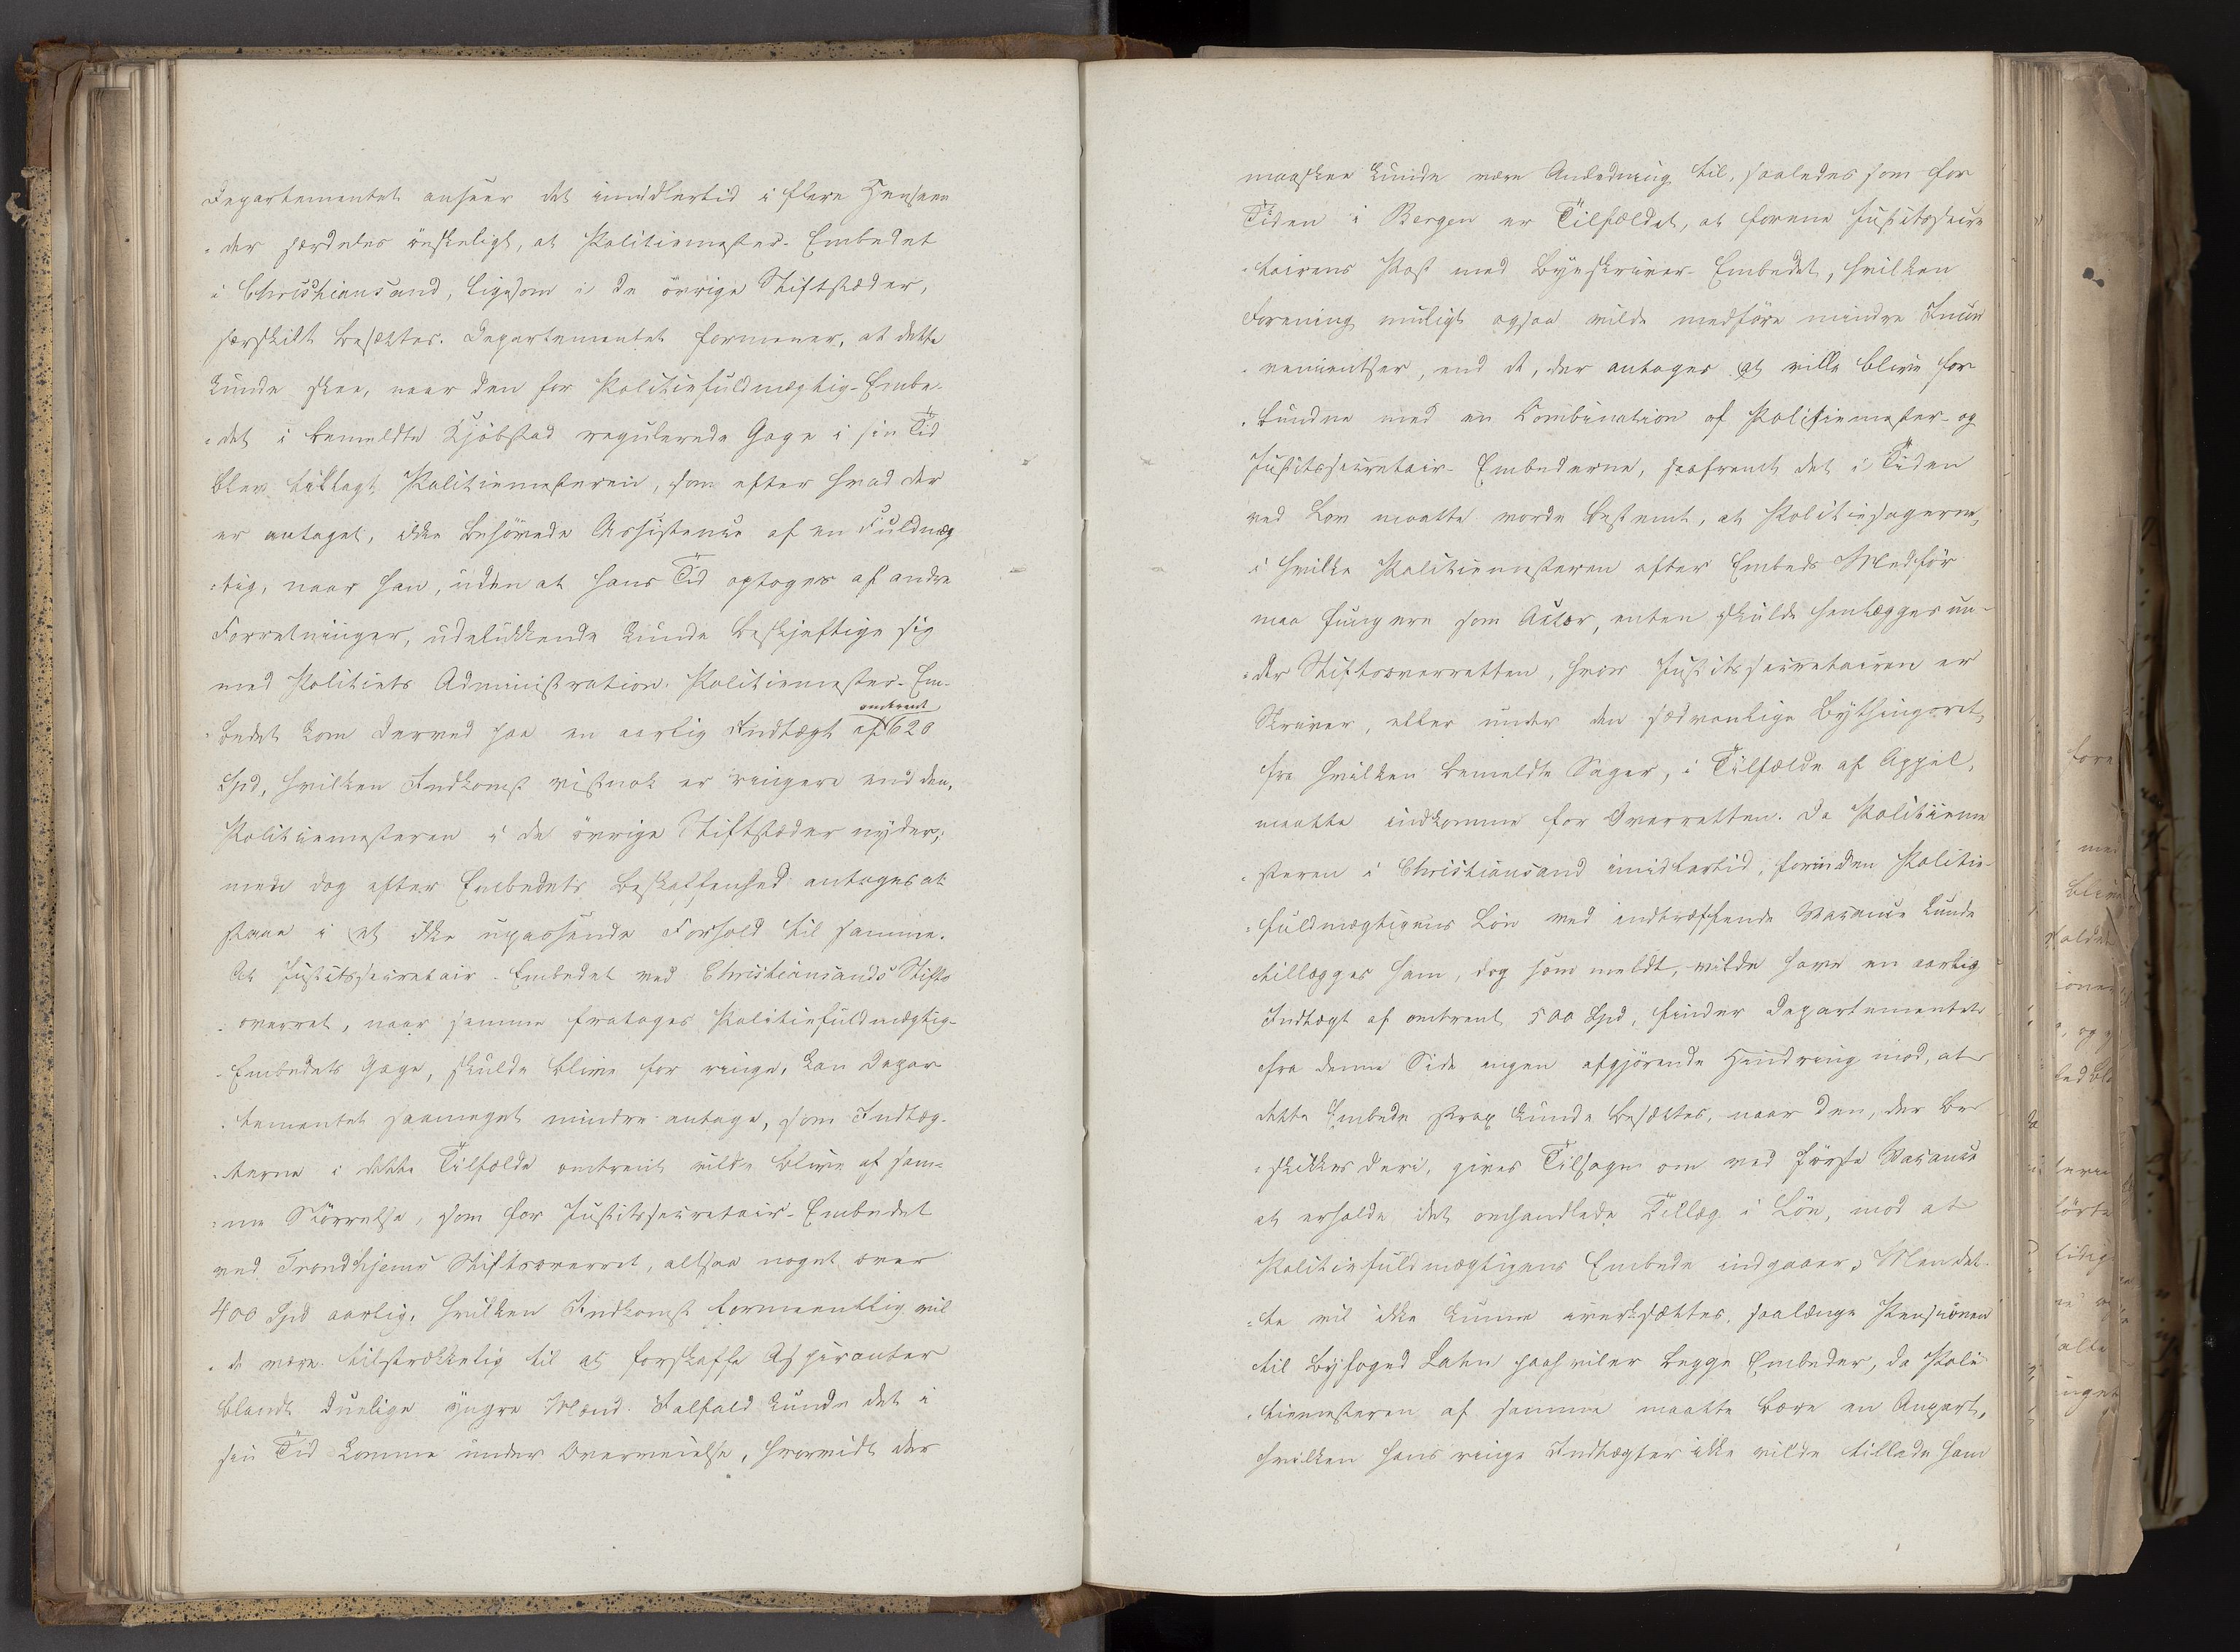 Departementet anseer det imidlertid i flere Henseen
-der særdeles önskeligt, at Politiemester-Embedet
i Christiansand, ligesom i de övrige Stiftstæder,
særskilt besættes. Departementet formener, at dette
kunde skee, naar den for Politiefuldmægtig-Embe-
-det i bemeldte Kjöbstad regulerede Gage i sin Tid
blev tillagt Politiemesteren, som efter hvad der
er antaget, ikke behövede Assistence af en Fuldmæg
-tig, naar han, uden at hans Tid optoges af andre
Forretninger, udelukkende kunde beskjeftige sig
med Politiets Administration. Politiemester-Em-
-bedet kom derved paa en aarlig Indtægt af omtrent 620
Spd, hvilken Indkomst vistnok er ringere end den,
Politiemesteren i de övrige Stiftstæder nyder,
men dog efter Embedets Beskaffenhed antages at
staae i et ikke upassende Forhold til samme.
At Justitssecretair-Embedet ved Christiansands Stifts
-overret, naar samme fratages Politiefuldmægtig-
-Embedets Gage, skulde blive for ringe, kan Depar
-tementet saameget mindre antage, som Indtæg-
-terne i dette Tilfælde omtrent vilde blive af sam-
-me Störrelse, som for Justitssecretair-Embedet
ved Trondhjems Stiftsoverret, altsaa noget over
400 Spd aarlig, hvilken Indkomst formeentlig vil
-de være tilstrækkelig til at forskaffe Aspiranter
blandt duelige yngre Mænd. Ialfald kunde det i
sin Tid komme under Overveielse, hvorvidt der
maaskee kunde være Anledning til, saaledes som for
Tiden i Bergen er Tilfældet, at forene Justitssecre
-tairens Post med Byeskriver-Embedet, hvilken
Forening muligt ogsaa vilde medföre mindre Incon
-venientser, end de, der antages at ville blive for
-bundne med en Combination af Politiemester- og
Justitssecretair-Embederne, saafremt det i Tiden
ved Lov maatte vorde bestemt, at Politiesagerne,
i hvilke Politiemesteren efter Embeds Medför
maa fungere som Actor, enten skulde henlægges un-
-der Stiftsoverretten, hvor Justitssecretairen er
Skriver, eller under den sædvanlige Bythingsret,
fra hvilken bemeldte Sager, i Tilfælde af Appel,
maatte indkomme for Overretten. Da Politieme
-steren i Christiansand imidlertid, forinden Politie-
-fuldmægtigens Lön ved indtræffende Vacance kunde
tillægges ham, dog som meldt, vilde have en aarlig
Indtægt af omtrent 500 Spd, finder Departementet
fra denne Side ingen afgjörende Hindring mod, at
dette Embede strax kunde besættes, naar den, der be
-skikkes deri, gives Tilsagn om ved förste Vacance
at erholde det omhandlede Tillæg i Lön, mod at
Politiefuldmægtigens Embede indgaaer; Men det-
-te vil ikke kunne iverksættes, saalænge Pensionen
til Byfoged Lahn paahviler begge Embeder, da Poli
-tiemesteren af samme maatte bære en Anpart,
hvilken hans ringe Indtægter ikke vilde tillade ham